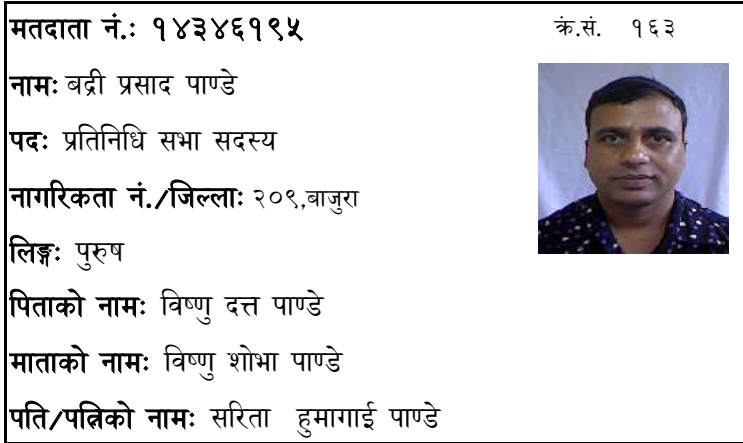 मतदाता नं.: १४३४६१९५ क्रं.सं. १६३
नामः बद्री प्रसाद पाण्डे
पदः प्रतिनिधि सभा सदस्य
नागरिकता नं./जिल्लाः २०९,बाजुरा
लिङ्गः पुरुष
पिताको नामः विष्णु दत्त पाण्डे
माताको नामः विष्णु शोभा पाण्डे
पति/पत्निको नामः सरिता हुमागाई पाण्डे